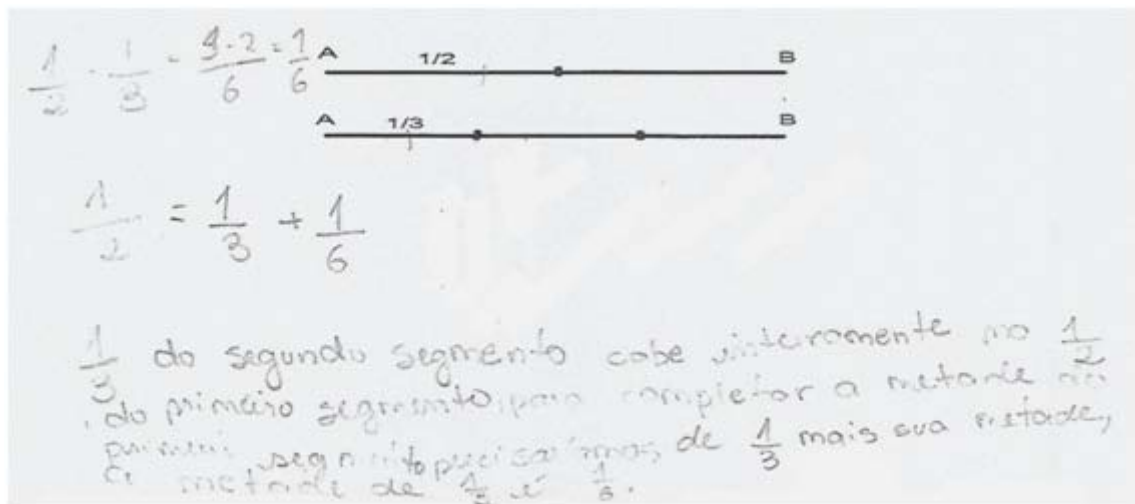 1/2 - 1/3 = 3-2/6 = 1/6
A 1/2 B
A 1/3 B
1/2 = 1/3 + 1/6
1/3 do segundo segmento cabe inteiramente no 1/2
do primeiro segmento, para completar a metade do
primeiro segmento precisaríamos de 1/3 mais sua metade,
a metade de 1/3 é 1/6.